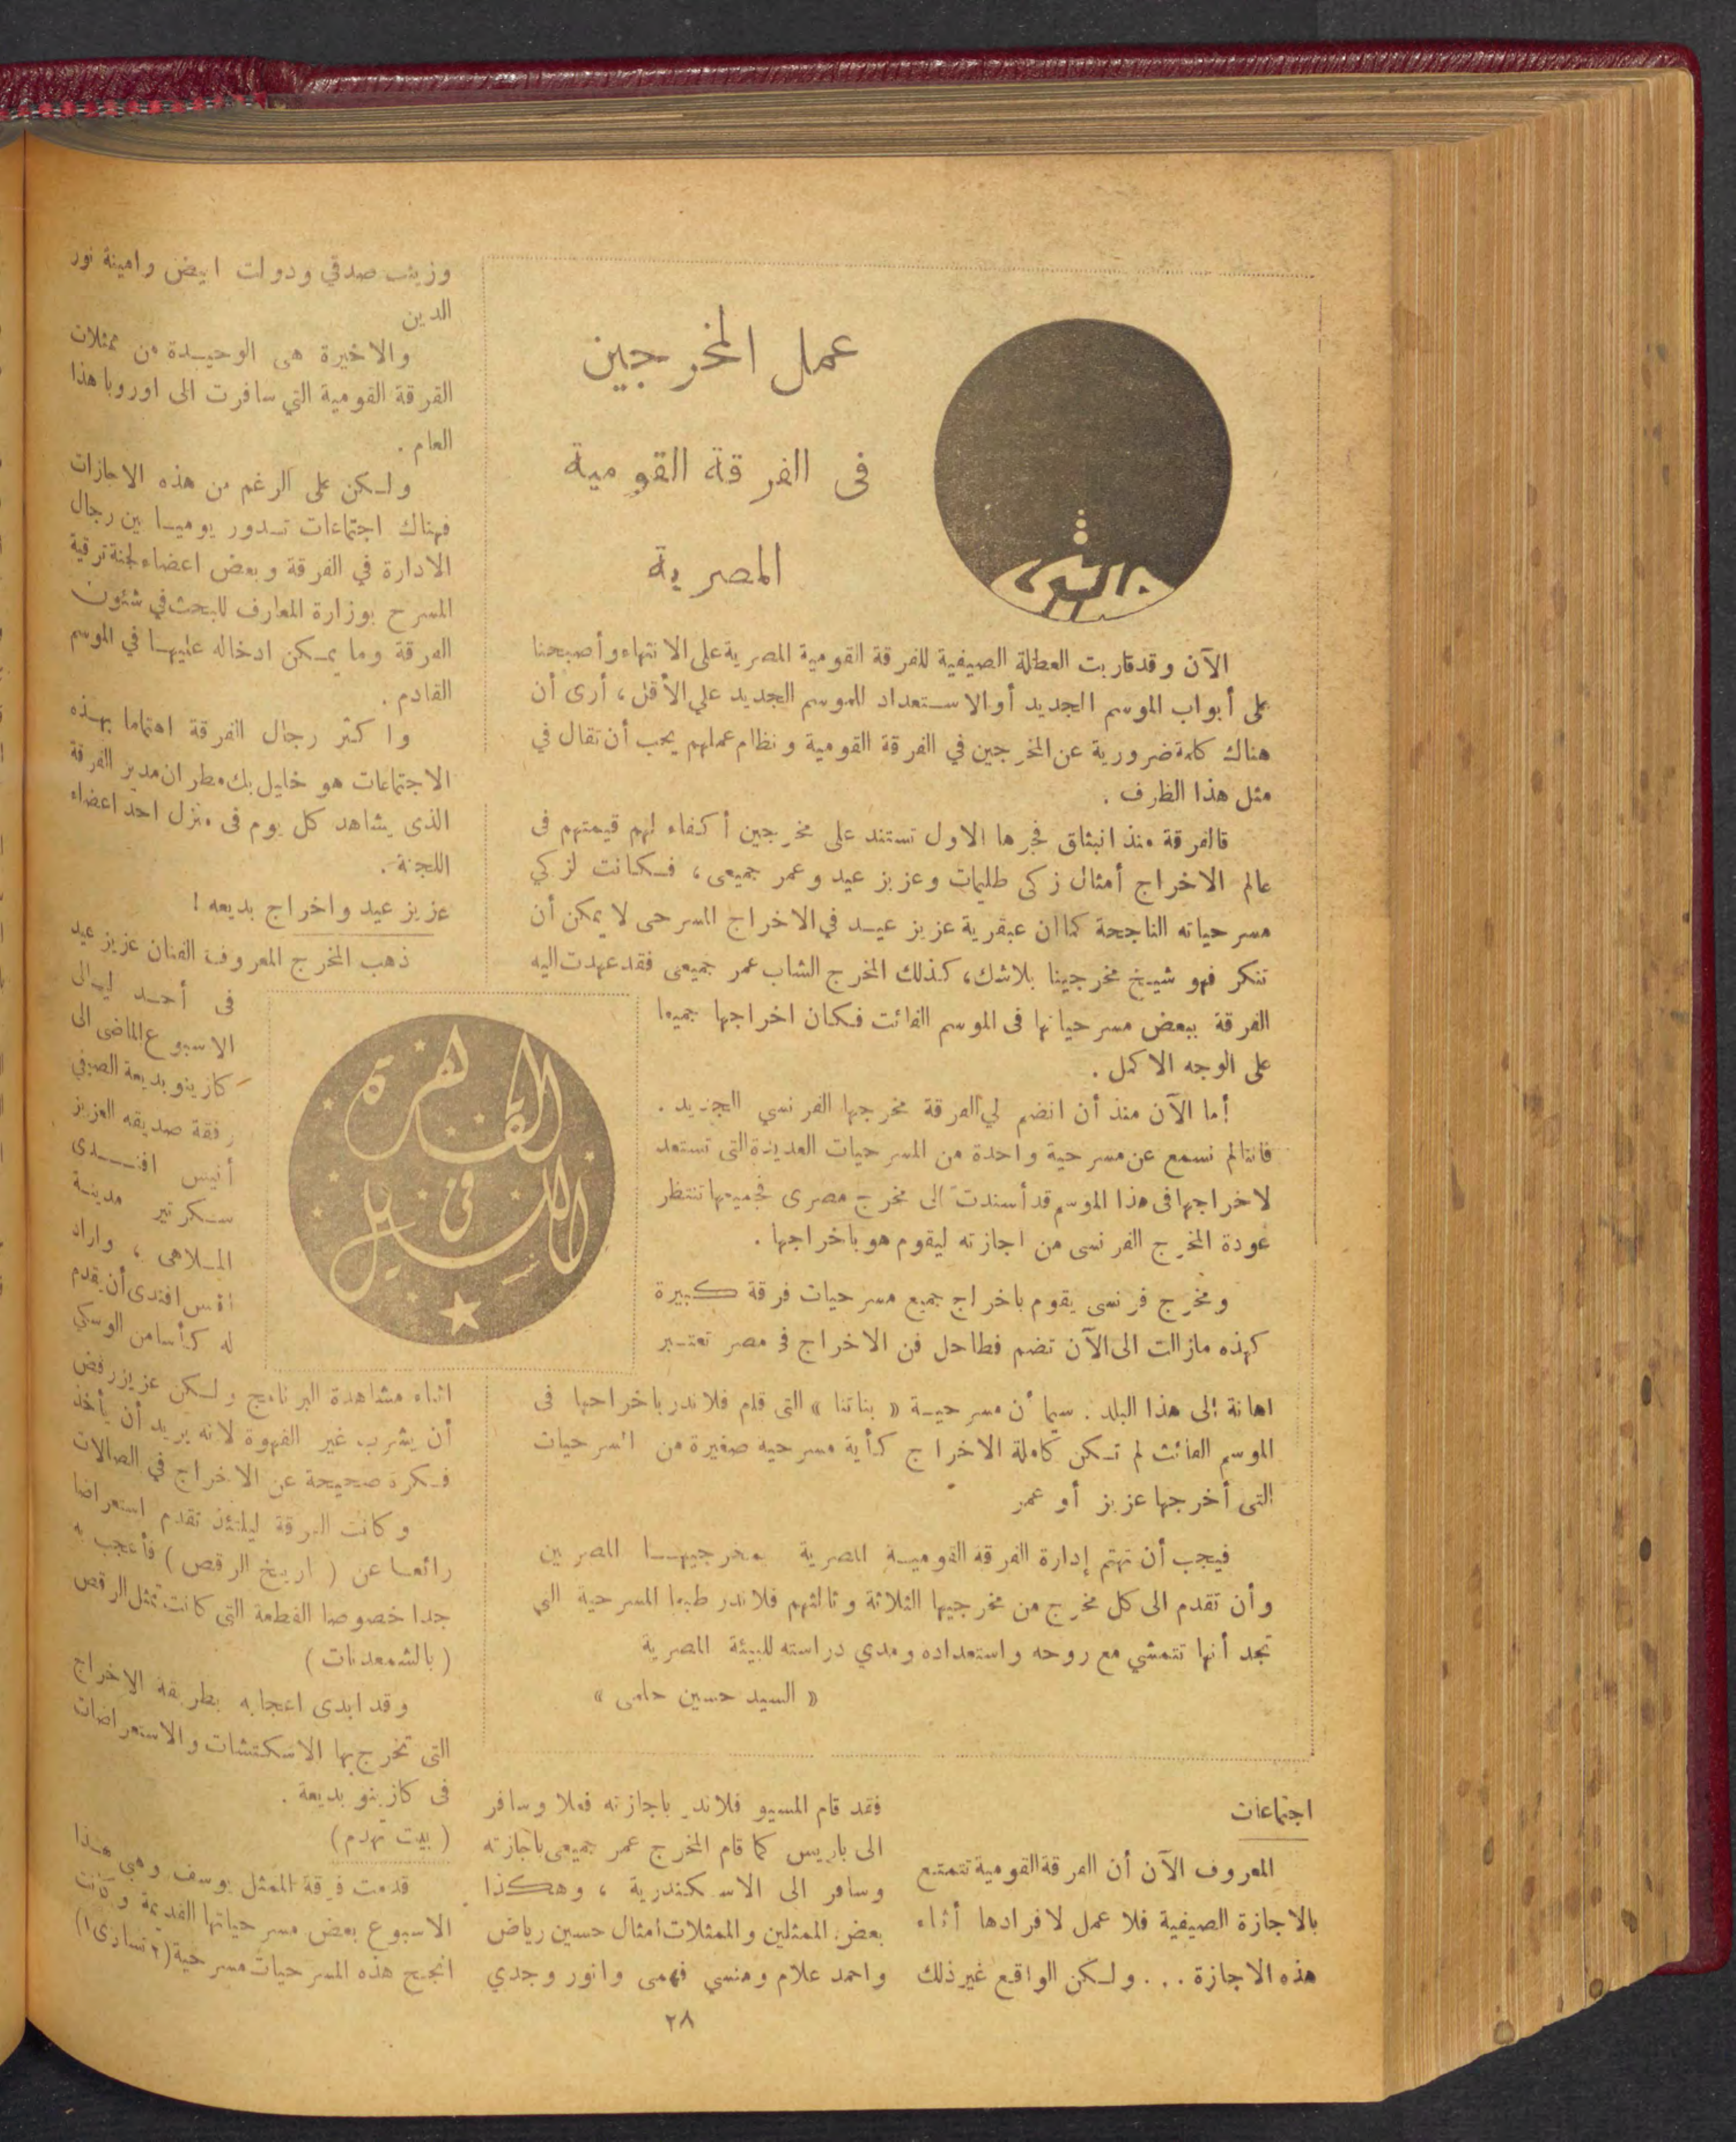 عمل المخرجين
فى الفرقة القومية
المصرية
الآن وقد قاربت العطلة الصيفية للفرقة القومية المصرية على الانتهاء وأصبحنا
على أبواب الموسم الجديد أو الاستعداد للموسم الجديد علي الأقل ، أرى أن
هناك كلمة ضرورية عن المخرجين في الفرقة القومية ونظام عملهم يجب أن تقال في
مثل هذا الظرف .
فالفرقة منذ انبثاق فجرها الاول تستند على مخرجين أكفاء لهم قيمتهم فى
عالم الاخراج أمثال زكى طليمات وعزيز عيد وعمر جميعى ، فكانت لزكي
مسرحياته الناجحة كما ان عبقرية عزيز عيد في الاخراج المسرحى لا يمكن أن
تنكر فهو شيخ مخرجينا بلاشك ، كذلك المخرج الشاب عمر جميعى فقد عهدت اليه
الفرقة ببعض مسرحياتها فى الموسم الفائت فكان اخراجها جميعا
على الوجه الاكمل .
أما الآن منذ أن انضم لي الفرقة مخرجها الفرنسي الجديد .
فاننا لم نسمع عن مسرحية واحدة من المسرحيات العديدة التى تستعد
لاخراجها فى هذا الموسم قد أسندت الى مخرج مصرى فجميعها تنتظر
عودة المخرج الفرنسى من اجازته ليقوم هو باخراجها .
ومخرج فرنسى يقوم باخراج جميع مسرحيات فرقة كبيرة
كهذه مازالت الى الآن تضم فطاحل فن الاخراج فى مصر تعتبر
اهانة الى هذا البلد . سيما أن مسرحية « بناتنا » التى قام فلاندر باخراجها فى
الموسم الفائت لم تكن كاملة الاخراج كأية مسرحيه صغيرة من المسرحيات
التى أخرجها عزيز أو عمر
فيجب أن تهتم إدارة الفرقة القومية المصرية بمخرجيها المصريين
وأن تقدم الى كل مخرج من مخرجيها الثلاثة وثالثهم فلاندر طبعا المسرحية التي
تجد أنها تتمشي مع روحه واستعداده ومدي دراسته للبيئة المصرية
« السيد حسين حلمى »
اجتماعات
المعروف الآن أن الفرقة القومية تتمتع
بالاجازة الصيفية فلا عمل لافرادها أثناء
هذه الاجازة . . . ولكن الواقع غير ذلك
فقد قام المسيو فلاندر باجازته فعلا وسافر
الى باريس كما قام المخرج عمر جميعى باجازته
وسافر الى الاسكندرية ، وهكذا
بعض الممثلين والممثلات امثال حسين رياض
واحمد علام ومنسي فهمى وانور وجدي
وزينب صدقي ودولت ابيض وامينة نور
الدين
والاخيرة هى الوحيدة من ممثلات
الفرقة القومية التي سافرت الى اوروبا هذا
العام .
ولكن على الرغم من هذه الاجازات
فهناك اجتماعات تدور يوميا بين رجال
الادارة في الفرقة وبعض اعضاء لجنة ترقية
المسرح بوزارة المعارف للبحث في شئون
الفرقة وما يمكن ادخاله عليها في الموسم
القادم .
واكثر رجال الفرقة اهتماما بهذه
الاجتماعات هو خليل بك مطران مدير الفرقة
الذى يشاهد كل يوم فى منزل احد اعضاء
اللجنة .
عزيز عيد واخراج بديعه !
ذهب المخرج المعروف الفنان عزيز عيد
فى أحد ليالى
الاسبوع الماضى الى
كازينو بديعة الصيفي
رفقة صديقه العزيز
أنيس افندى
سكرتير مدينة
الملاهى ، واراد
انيس افندى أن يقدم
له كأسا من الوسكي
القاهرة
فى
الليل
اثناء مشاهدة البرنامج ولكن عزيز رفض
أن يشرب غير القهوة لانه يريد أن يأخذ
فكرة صحيحة عن الاخراج في الصالات
وكانت الفرقة ليلتئذ تقدم استعراضا
رائعا عن ( تاريخ الرقص ) فأعجب به
جدا خصوصا القطعة التى كانت تمثل الرقص
( بالشمعدنات )
وقد ابدى اعجابه بطريقة الاخراج
التى تخرج بها الاسكتشات والاستعراضات
فى كازينو بديعة .
( بيت تهدم )
قدمت فرقة الممثل يوسف وهبي هذا
الاسبوع بعض مسرحياتها القديمة وكانت
انجح هذه المسرحيات مسرحية (٢ تساوى ١)
٢٨